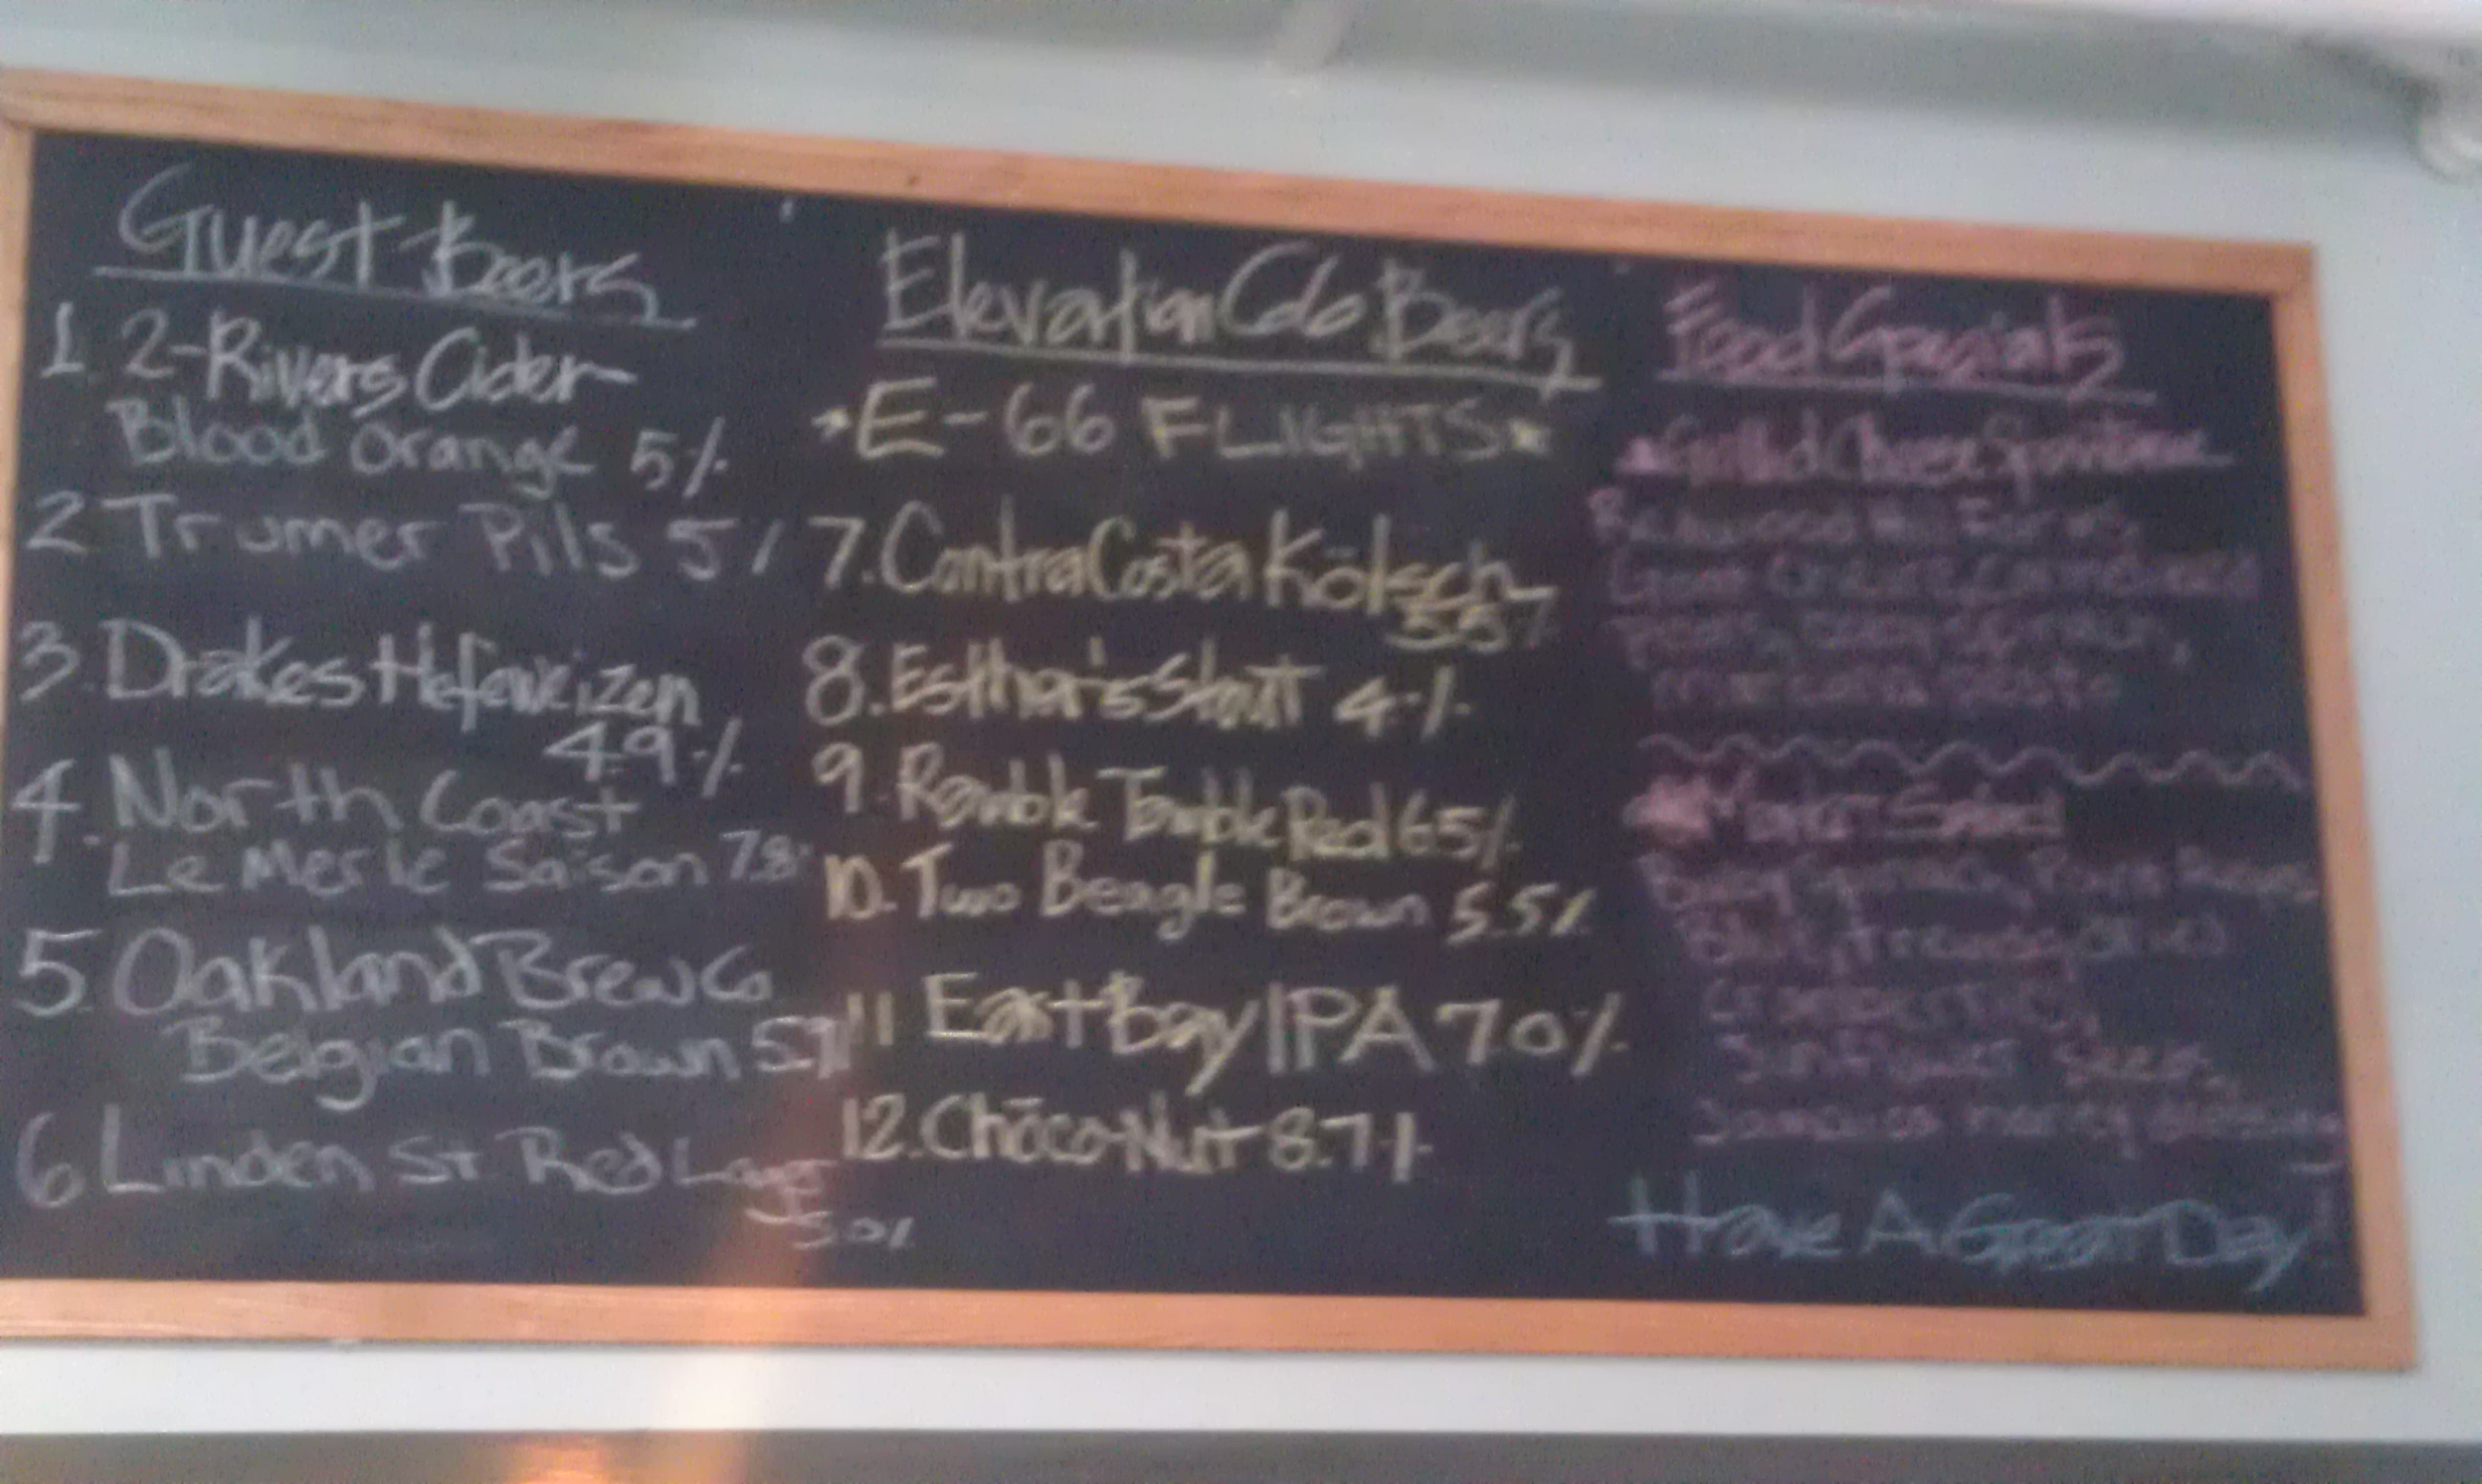 Guest Beers
1. 2-Rivers Cider
Blood Orange 5%
2 Trumer Pils 5%
3. Drakes Hefeweizen
4.9%
4. North Coast
Le Merle Saison 7.8
5. Oakland Brew Co
Belgian Brown 5.7%
6 Linden St Red Lager
5.0%
Elevation 66 Beers
*E-66 FLIGHTS*
7. Contra Costa Kölsch
5.5%
8. Esther's Stout 4%
9. Ramble Tamble Red 6.5%
10. Two Beagle Brown 5.5%
11 East Bay IPA 7.0%
12. Choco Nut 8.7%
Food Specials
Grilled Cheese
Redwood Hill Farms
Goat
pears, baby spinach,
pesto
Market Salad
Baby Spinach, Point Reyes
Blue, dried
cranberries,
Sunflower Seeds,
honey
Have A Great Day!